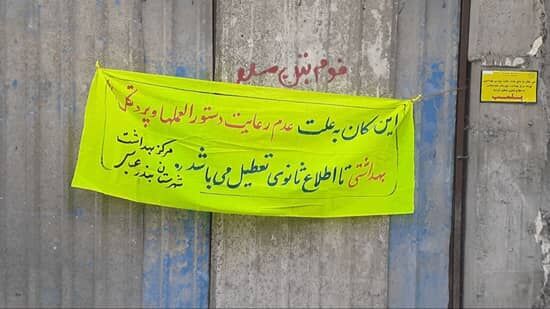 فوم پنل سدید
این مکان به علت عدم رعایت دستورالعملها و پروتکل
بهداشتی تا اطلاع ثانوی تعطیل می باشد
مرکز بهداشت
شهرستان بندرعباس
پلمپ